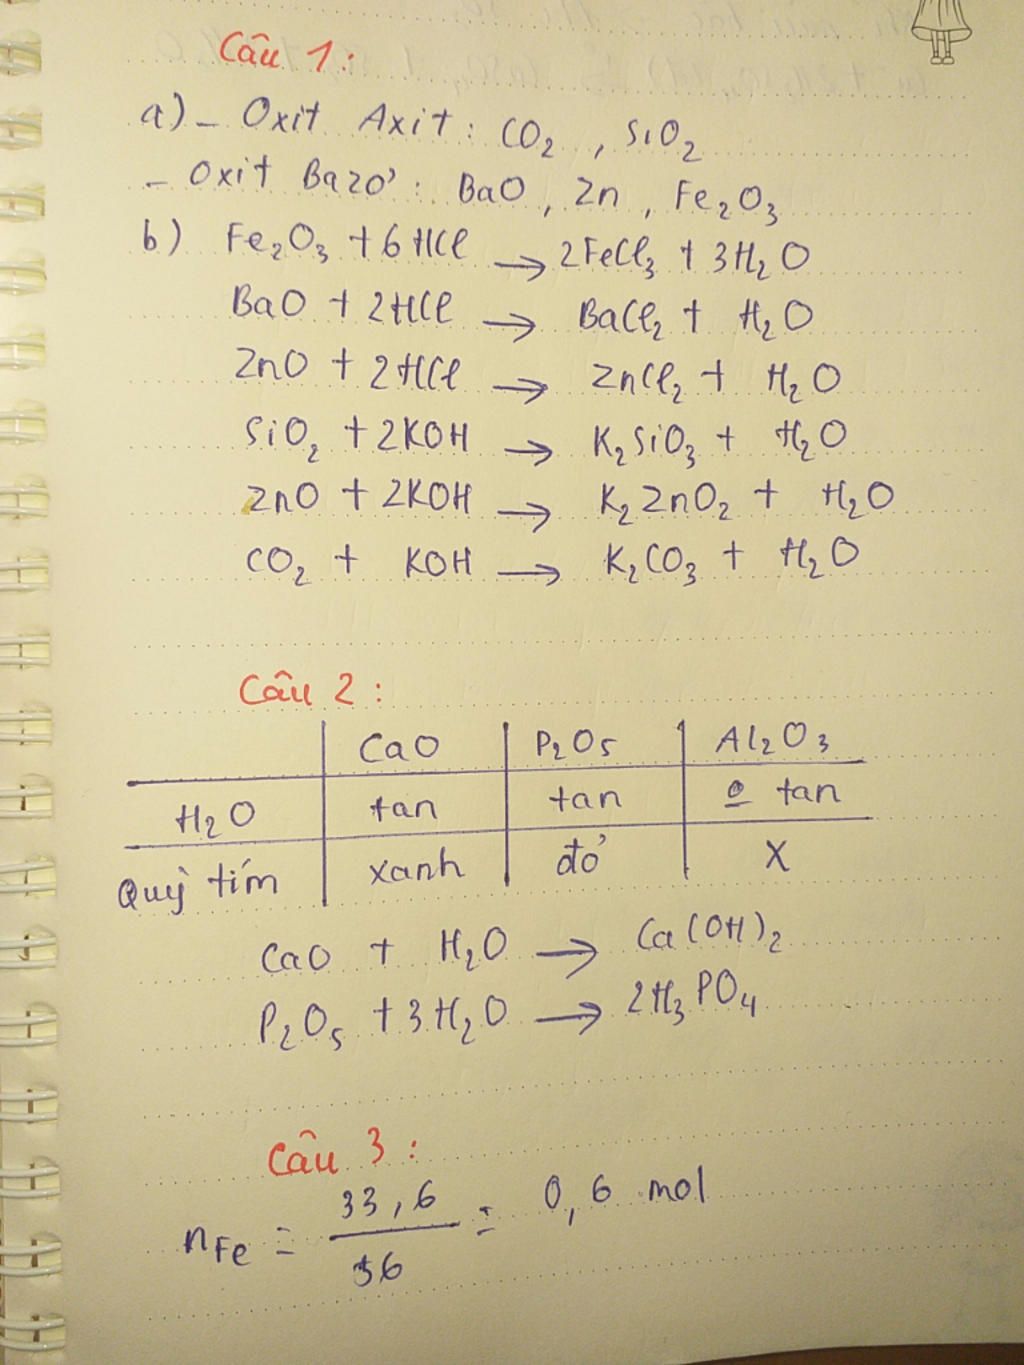 Câu 1:
a) - Oxit Axit: CO2, SiO2
- Oxit Bazơ: BaO, Zn, Fe2O3
b) Fe2O3 + 6HCl → 2FeCl3 + 3H2O
BaO + 2HCl → BaCl2 + H2O
ZnO + 2HCl → ZnCl2 + H2O
SiO2 + 2KOH → K2SiO3 + H2O
ZnO + 2KOH → K2ZnO2 + H2O
CO2 + KOH → K2CO3 + H2O
Câu 2:
CaO P2O5 Al2O3
H2O tan tan o tan
Quỳ tím xanh đỏ X
CaO + H2O → Ca(OH)2
P2O5 + 3H2O → 2H3PO4
Câu 3:
nFe = 33,6 / 56 = 0,6 mol